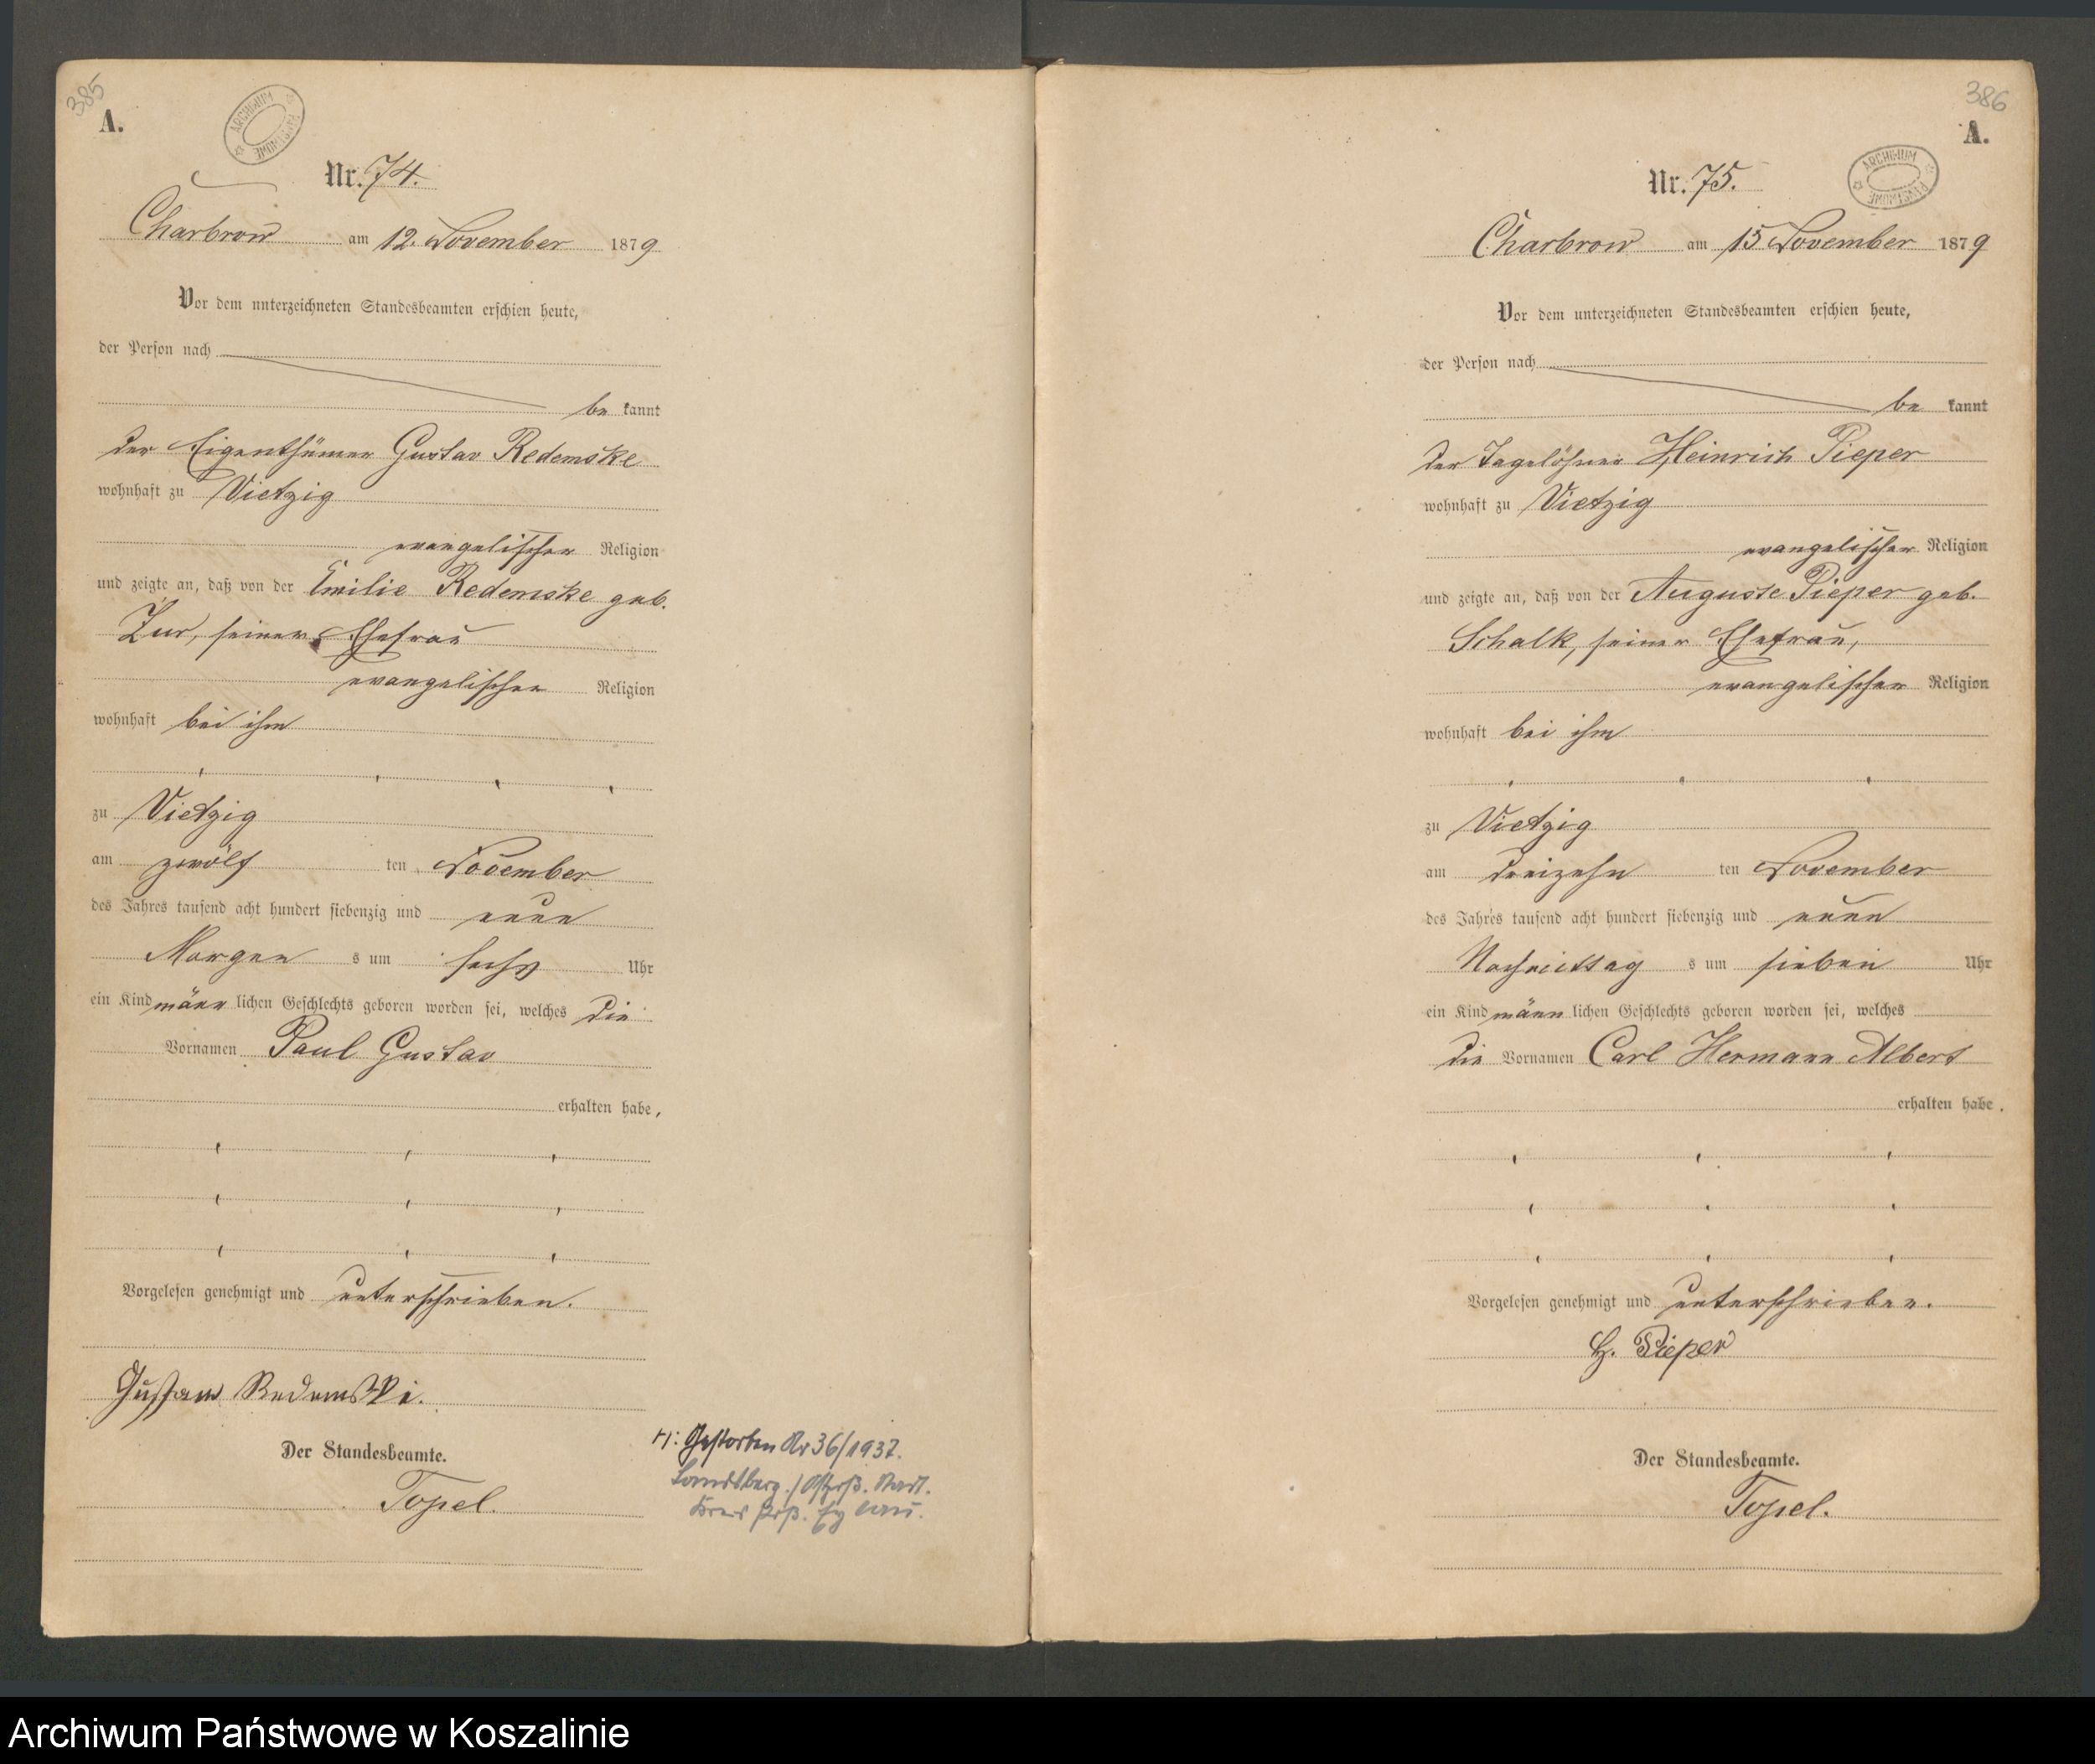 385
A.
ARCHIWUM PAŃSTWOWE
Nr. 74.
Charbrow am 12. November 1879
Vor dem unterzeichneten Standesbeamten erschien heute,
der Person nach
be kannt
der Eigenthümer Gustav Redemske
wohnhaft zu Vietzig
evangelischer Religion
und zeigte an, daß von der Emilie Redemske geb.
Zur, seiner Ehefrau
evangelischer Religion
wohnhaft bei ihm
zu Vietzig
am zwölf ten November
des Jahres tausend acht hundert siebenzig und neun
Morgen s um sechs Uhr
ein Kind männ lichen Geschlechts geboren worden sei, welches die
Vornamen Paul Gustav
erhalten habe,
Vorgelesen genehmigt und unterschrieben.
Gustaw Redemski.
Der Standesbeamte.
Topel.
H: Gestorben Nr 36/1937.
Landsberg /Ostprß. Stadt.
Kreis Prß. Eylau.
386
A.
ARCHIWUM PAŃSTWOWE
Nr. 75.
Charbrow am 15 November 1879
Vor dem unterzeichneten Standesbeamten erschien heute,
der Person nach
be kannt
der Tagelöhner Heinrich Pieper
wohnhaft zu Vietzig
evangelischer Religion
und zeigte an, daß von der Auguste Pieper geb.
Schalk, seiner Ehefrau,
evangelischer Religion
wohnhaft bei ihm
zu Vietzig
am dreizehn ten November
des Jahres tausend acht hundert siebenzig und neun
Nachmittag s um sieben Uhr
ein Kind männ lichen Geschlechts geboren worden sei, welches
die Vornamen Carl Hermann Albert
erhalten habe.
Vorgelesen genehmigt und unterschrieben.
H. Pieper
Der Standesbeamte.
Topel.
Archiwum Państwowe w Koszalinie